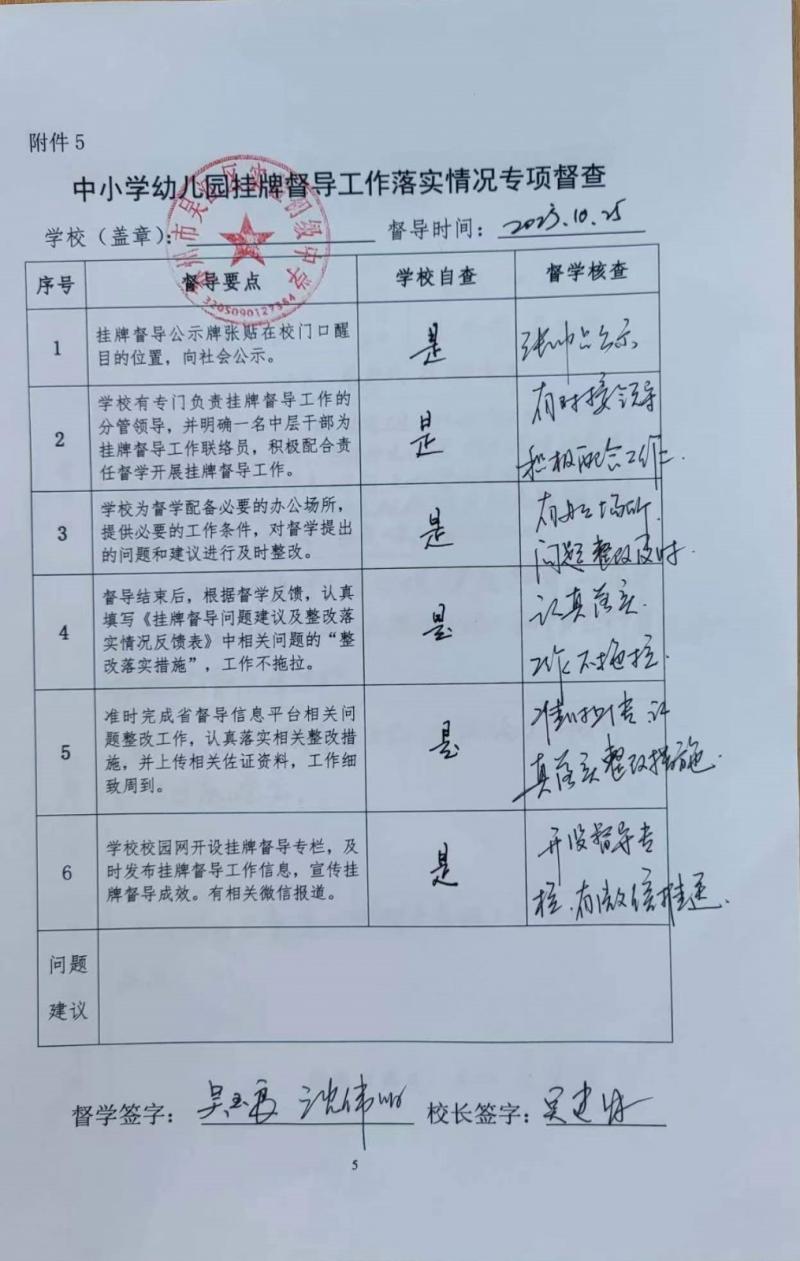 附件 5
中小学幼儿园挂牌督导工作落实情况专项督查
学校（盖章）：
督导时间：2023.10.25
3205090127384
序号 督导要点 学校自查 督学核查
1
挂牌督导公示牌张贴在校门口醒
目的位置，向社会公示。
是
公示
2
学校有专门负责挂牌督导工作的
分管领导，并明确一名中层干部为
挂牌督导工作联络员，积极配合责
任督学开展挂牌督导工作。
是
有对接领导
积极配合工作.
3
学校为督学配备必要的办公场所，
提供必要的工作条件，对督学提出
的问题和建议进行及时整改。
是
有办公场所.
问题整改及时.
4
督导结束后，根据督学反馈，认真
填写《挂牌督导问题建议及整改落
实情况反馈表》中相关问题的“整
改落实措施”，工作不拖拉。
是
认真落实.
工作不拖拉.
5
准时完成省督导信息平台相关问
题整改工作，认真落实相关整改措
施，并上传相关佐证资料，工作细
致周到。
是
认
真落实整改措施.
6
学校校园网开设挂牌督导专栏，及
时发布挂牌督导工作信息，宣传挂
牌督导成效。有相关微信报道。
是
开设督导专
栏.有微信推送.
问题
建议
督学签字：
校长签字：
5